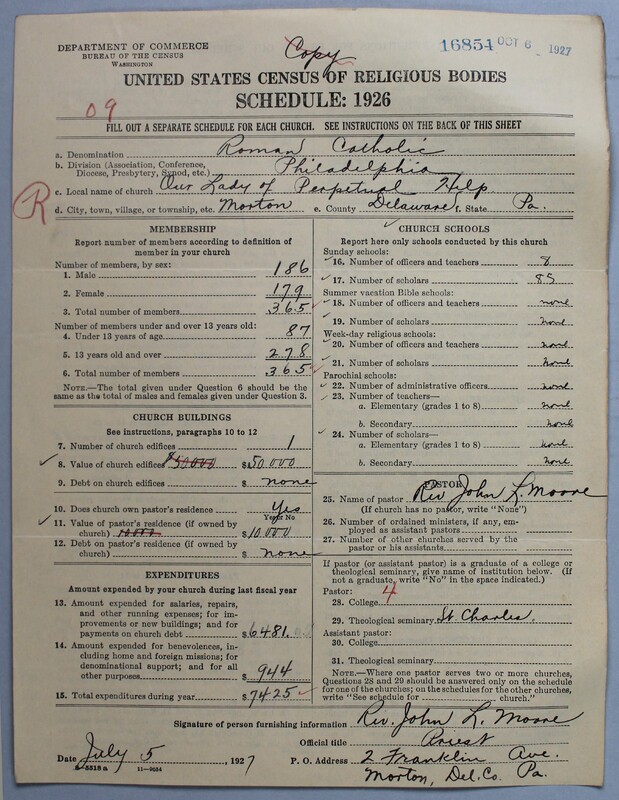 DEPARTMENT OF COMMERCE
BUREAU OF THE CENSUS
WASHINGTON
Copy
16854 OCT 6 1927
UNITED STATES CENSUS OF RELIGIOUS BODIES
SCHEDULE: 1926
09
FILL OUT A SEPARATE SCHEDULE FOR EACH CHURCH. SEE INSTRUCTIONS ON THE BACK OF THIS SHEET
a. Denomination Roman Catholic
b. Division (Association, Conference, Diocese, Presbytery, Synod, etc.) Philadelphia
c. Local name of church Our Lady of Perpetual Help
R
d. City, town, village, or township, etc. Morton e. County Delaware f. State Pa.
MEMBERSHIP
Report number of members according to definition of member in your church
Number of members, by sex:
1. Male 186
2. Female 179
3. Total number of members 365
Number of members under and over 13 years old:
4. Under 13 years of age 87
5. 13 years old and over 278
6. Total number of members 365
NOTE.—The total given under Question 6 should be the same as the total of males and females given under Question 3.
CHURCH BUILDINGS
See instructions, paragraphs 10 to 12
7. Number of church edifices 1
8. Value of church edifices $50000 $50,000
9. Debt on church edifices $ none
10. Does church own pastor's residence Yes
Yes or No
11. Value of pastor's residence (if owned by church) 10.000 $10,000
12. Debt on pastor's residence (if owned by church) $ none
EXPENDITURES
Amount expended by your church during last fiscal year
13. Amount expended for salaries, repairs, and other running expenses; for improvements or new buildings; and for payments on church debt $6481.
14. Amount expended for benevolences, including home and foreign missions; for denominational support; and for all other purposes $ 944
15. Total expenditures during year $7425
CHURCH SCHOOLS
Report here only schools conducted by this church
Sunday schools:
16. Number of officers and teachers 8
17. Number of scholars 85
Summer vacation Bible schools:
18. Number of officers and teachers none
19. Number of scholars none
Week-day religious schools:
20. Number of officers and teachers none
21. Number of scholars none
Parochial schools:
22. Number of administrative officers none
23. Number of teachers—
a. Elementary (grades 1 to 8) none
b. Secondary none
24. Number of scholars—
a. Elementary (grades 1 to 8) none
b. Secondary none
PASTOR
25. Name of pastor Rev. John L. Moore
(If church has no pastor, write "None")
26. Number of ordained ministers, if any, employed as assistant pastors
27. Number of other churches served by the pastor or his assistants
If pastor (or assistant pastor) is a graduate of a college or theological seminary, give name of institution below. (If not a graduate, write "No" in the space indicated.)
Pastor: 4
28. College
29. Theological seminary St Charles
Assistant pastor:
30. College
31. Theological seminary
NOTE.—Where one pastor serves two or more churches, Questions 28 and 29 should be answered only on the schedule for one of the churches; on the schedules for the other churches, write "See schedule for church."
Signature of person furnishing information Rev. John L. Moore
Official title Priest
Date July 5, 1927 P. O. Address 2 Franklin Ave.
5518 a 11—9654 Morton, Del. Co. Pa.